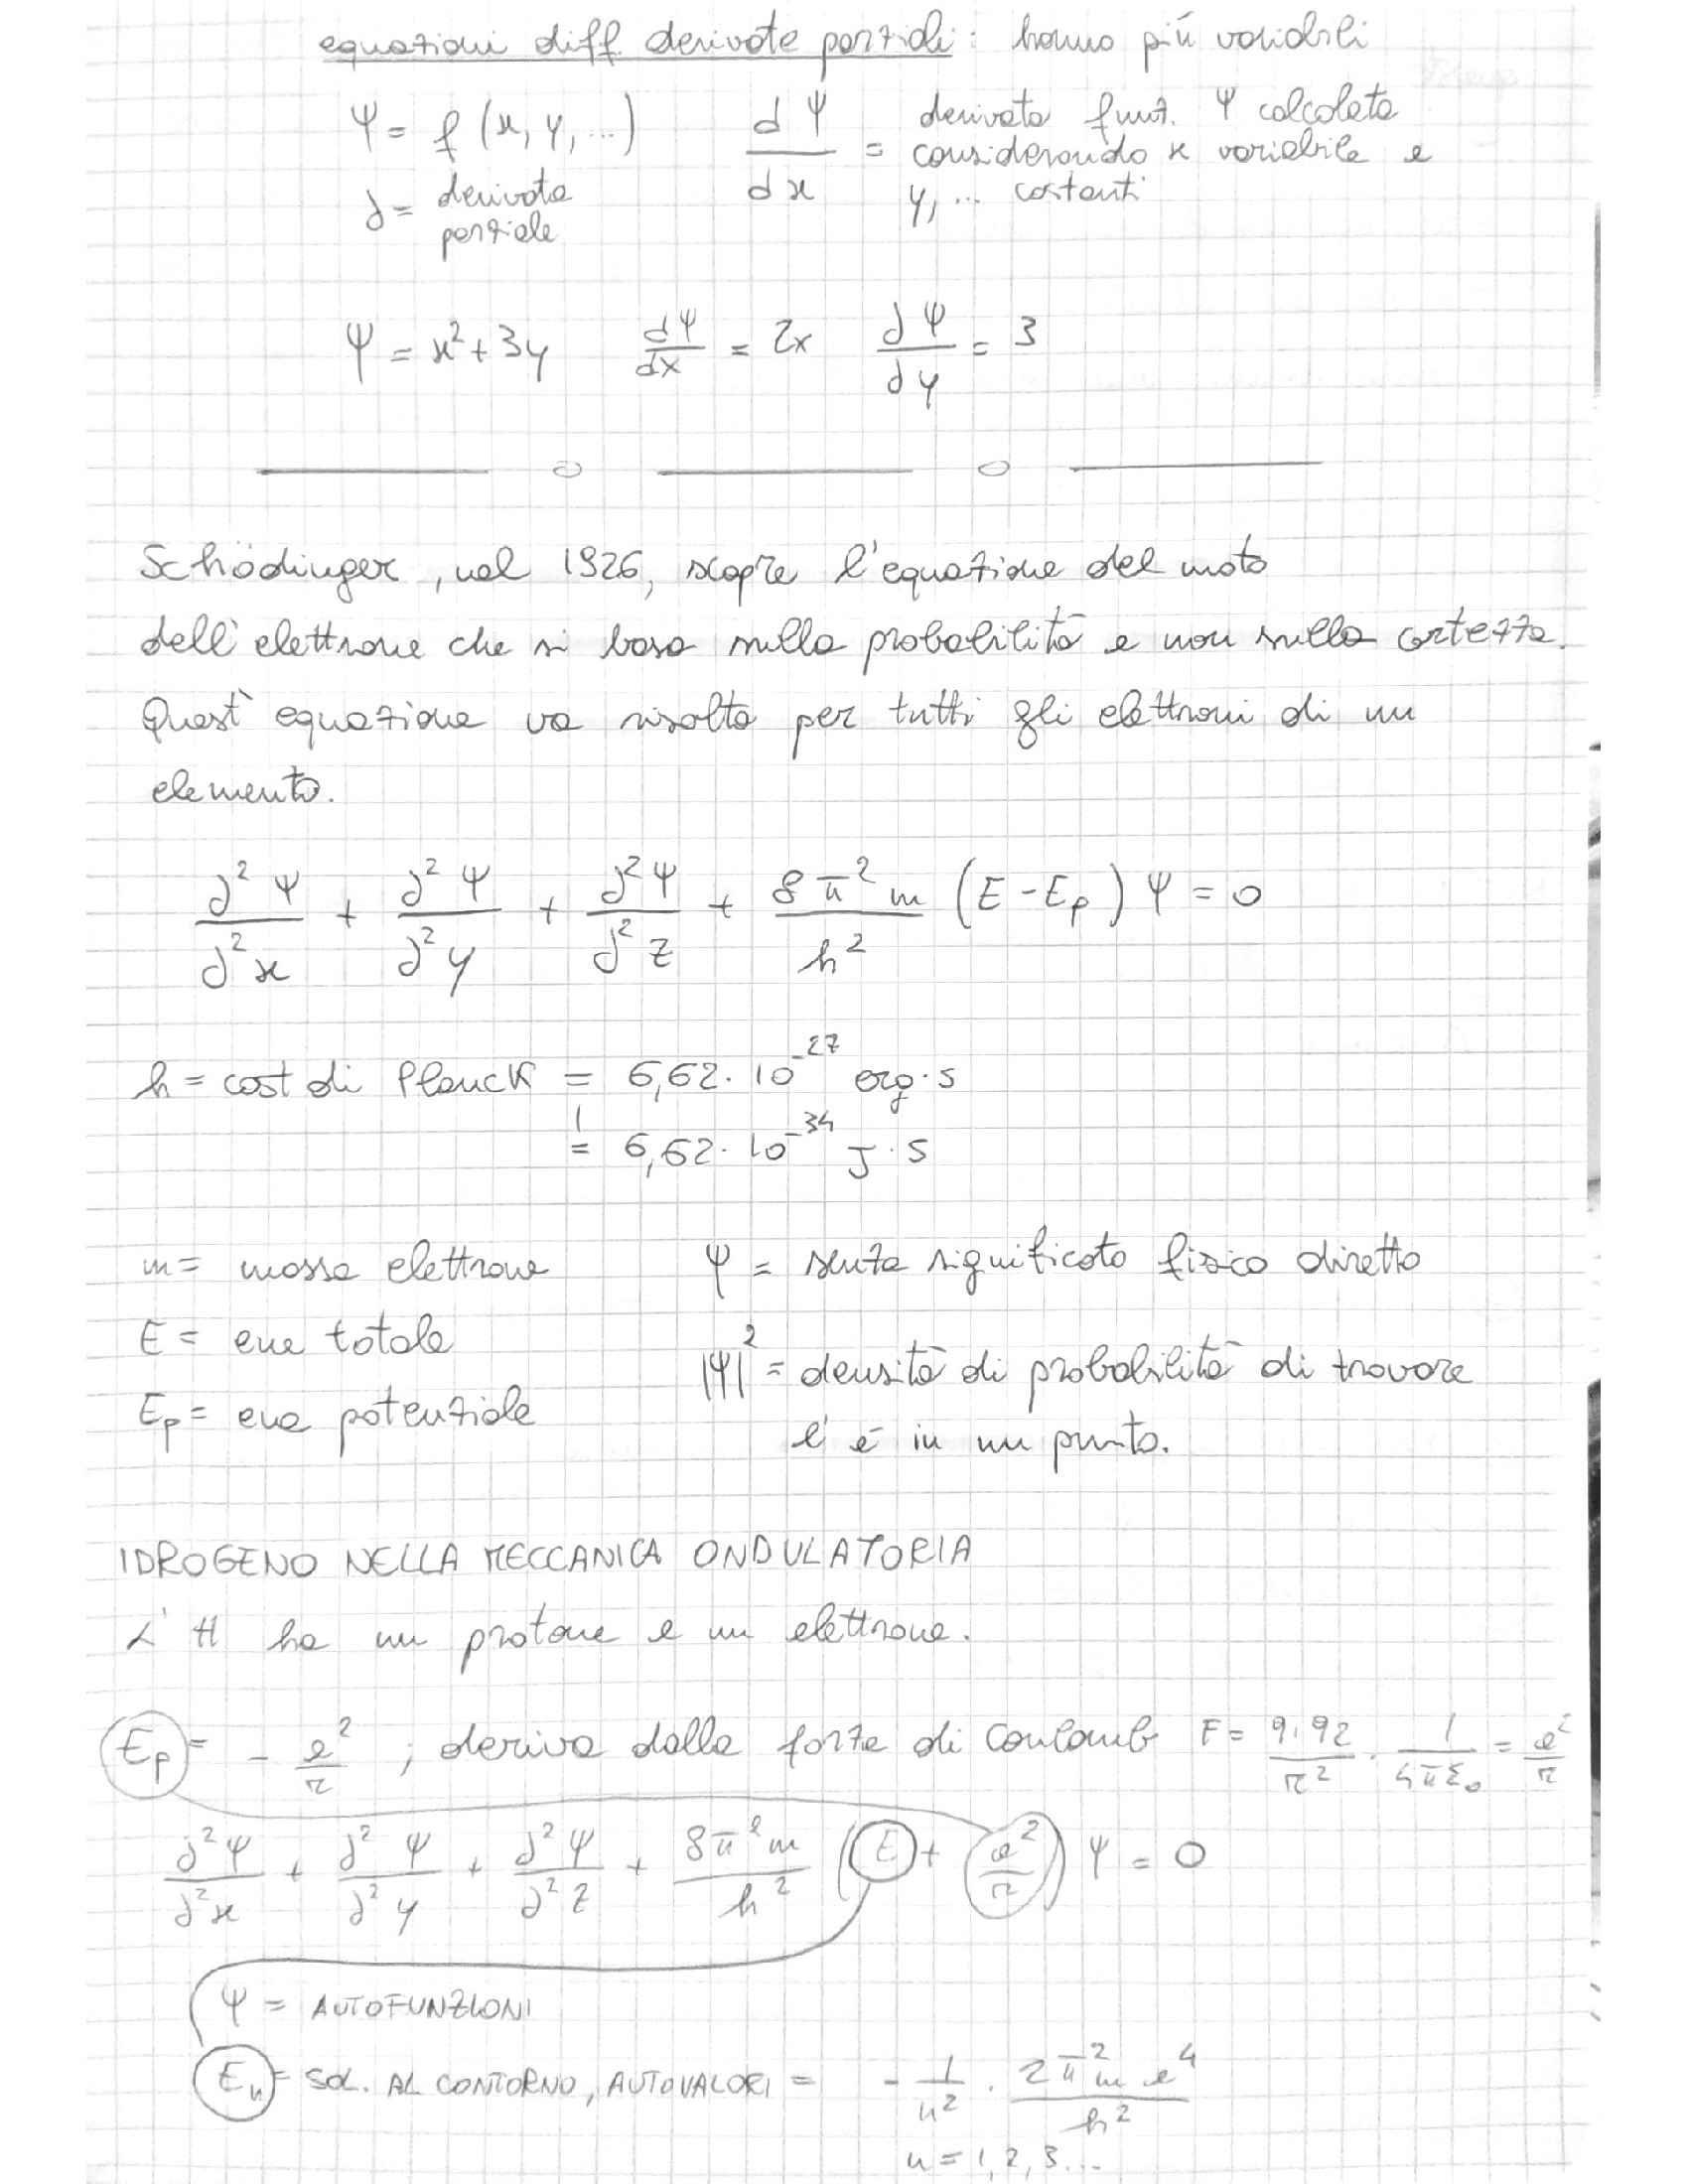 equazioni diff. derivate parziali: hanno più variabili
Ψ = f (x, y, ...)   dΨ/dx = derivata funz. Ψ calcolata considerando x variabile e y, ... costanti
∂ = derivata parziale
Ψ = x² + 3y   dΨ/dx = 2x   ∂Ψ/∂y = 3
Schödinger, nel 1926, scopre l'equazione del moto
dell'elettrone che si basa sulla probabilità e non sulla certezza.
Quest'equazione va risolta per tutti gli elettroni di un
elemento.
∂²Ψ/∂²x + ∂²Ψ/∂²y + ∂²Ψ/∂²z + 8π²m/h² (E - Ep) Ψ = 0
h = cost di Planck = 6,62 · 10⁻²⁷ erg · s
= 6,62 · 10⁻³⁴ J · s
m = massa elettrone
E = ene totale
Ep = ene potenziale
Ψ = senza significato fisico diretto
|Ψ|² = densità di probabilità di trovare
l'e⁻ in un punto.
IDROGENO NELLA MECCANICA ONDULATORIA
L'H ha un protone e un elettrone.
Ep = - e²/r ; deriva dalla forza di Coulomb F = q1·q2/r² · 1/4πε₀ = e²/r
∂²Ψ/∂²x + ∂²Ψ/∂²y + ∂²Ψ/∂²z + 8π²m/h² (E + e²/r) Ψ = 0
Ψ = AUTOFUNZIONI
En = SOL. AL CONTORNO, AUTOVALORI = - 1/n² · 2π²m e⁴/h²
n = 1, 2, 3...